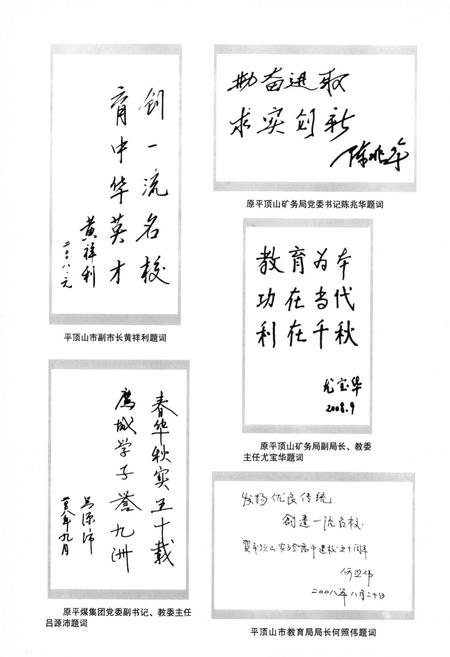 创一流名校
育中华英才
黄祥利
二〇〇八.元
平顶山市副市长黄祥利题词
勤奋进取
求实创新
陈兆华
原平顶山矿务局党委书记陈兆华题词
教育为本
功在当代
利在千秋
尤宝华
2008.9
原平顶山矿务局副局长、教委
主任尤宝华题词
春华秋实五十载
鹰城学子誉九洲
吕源沛
二〇〇八年九月
原平煤集团党委副书记、教委主任
吕源沛题词
发扬优良传统
创造一流名校
建校五十周年
2008年八月二十日
平顶山市教育局局长何照伟题词